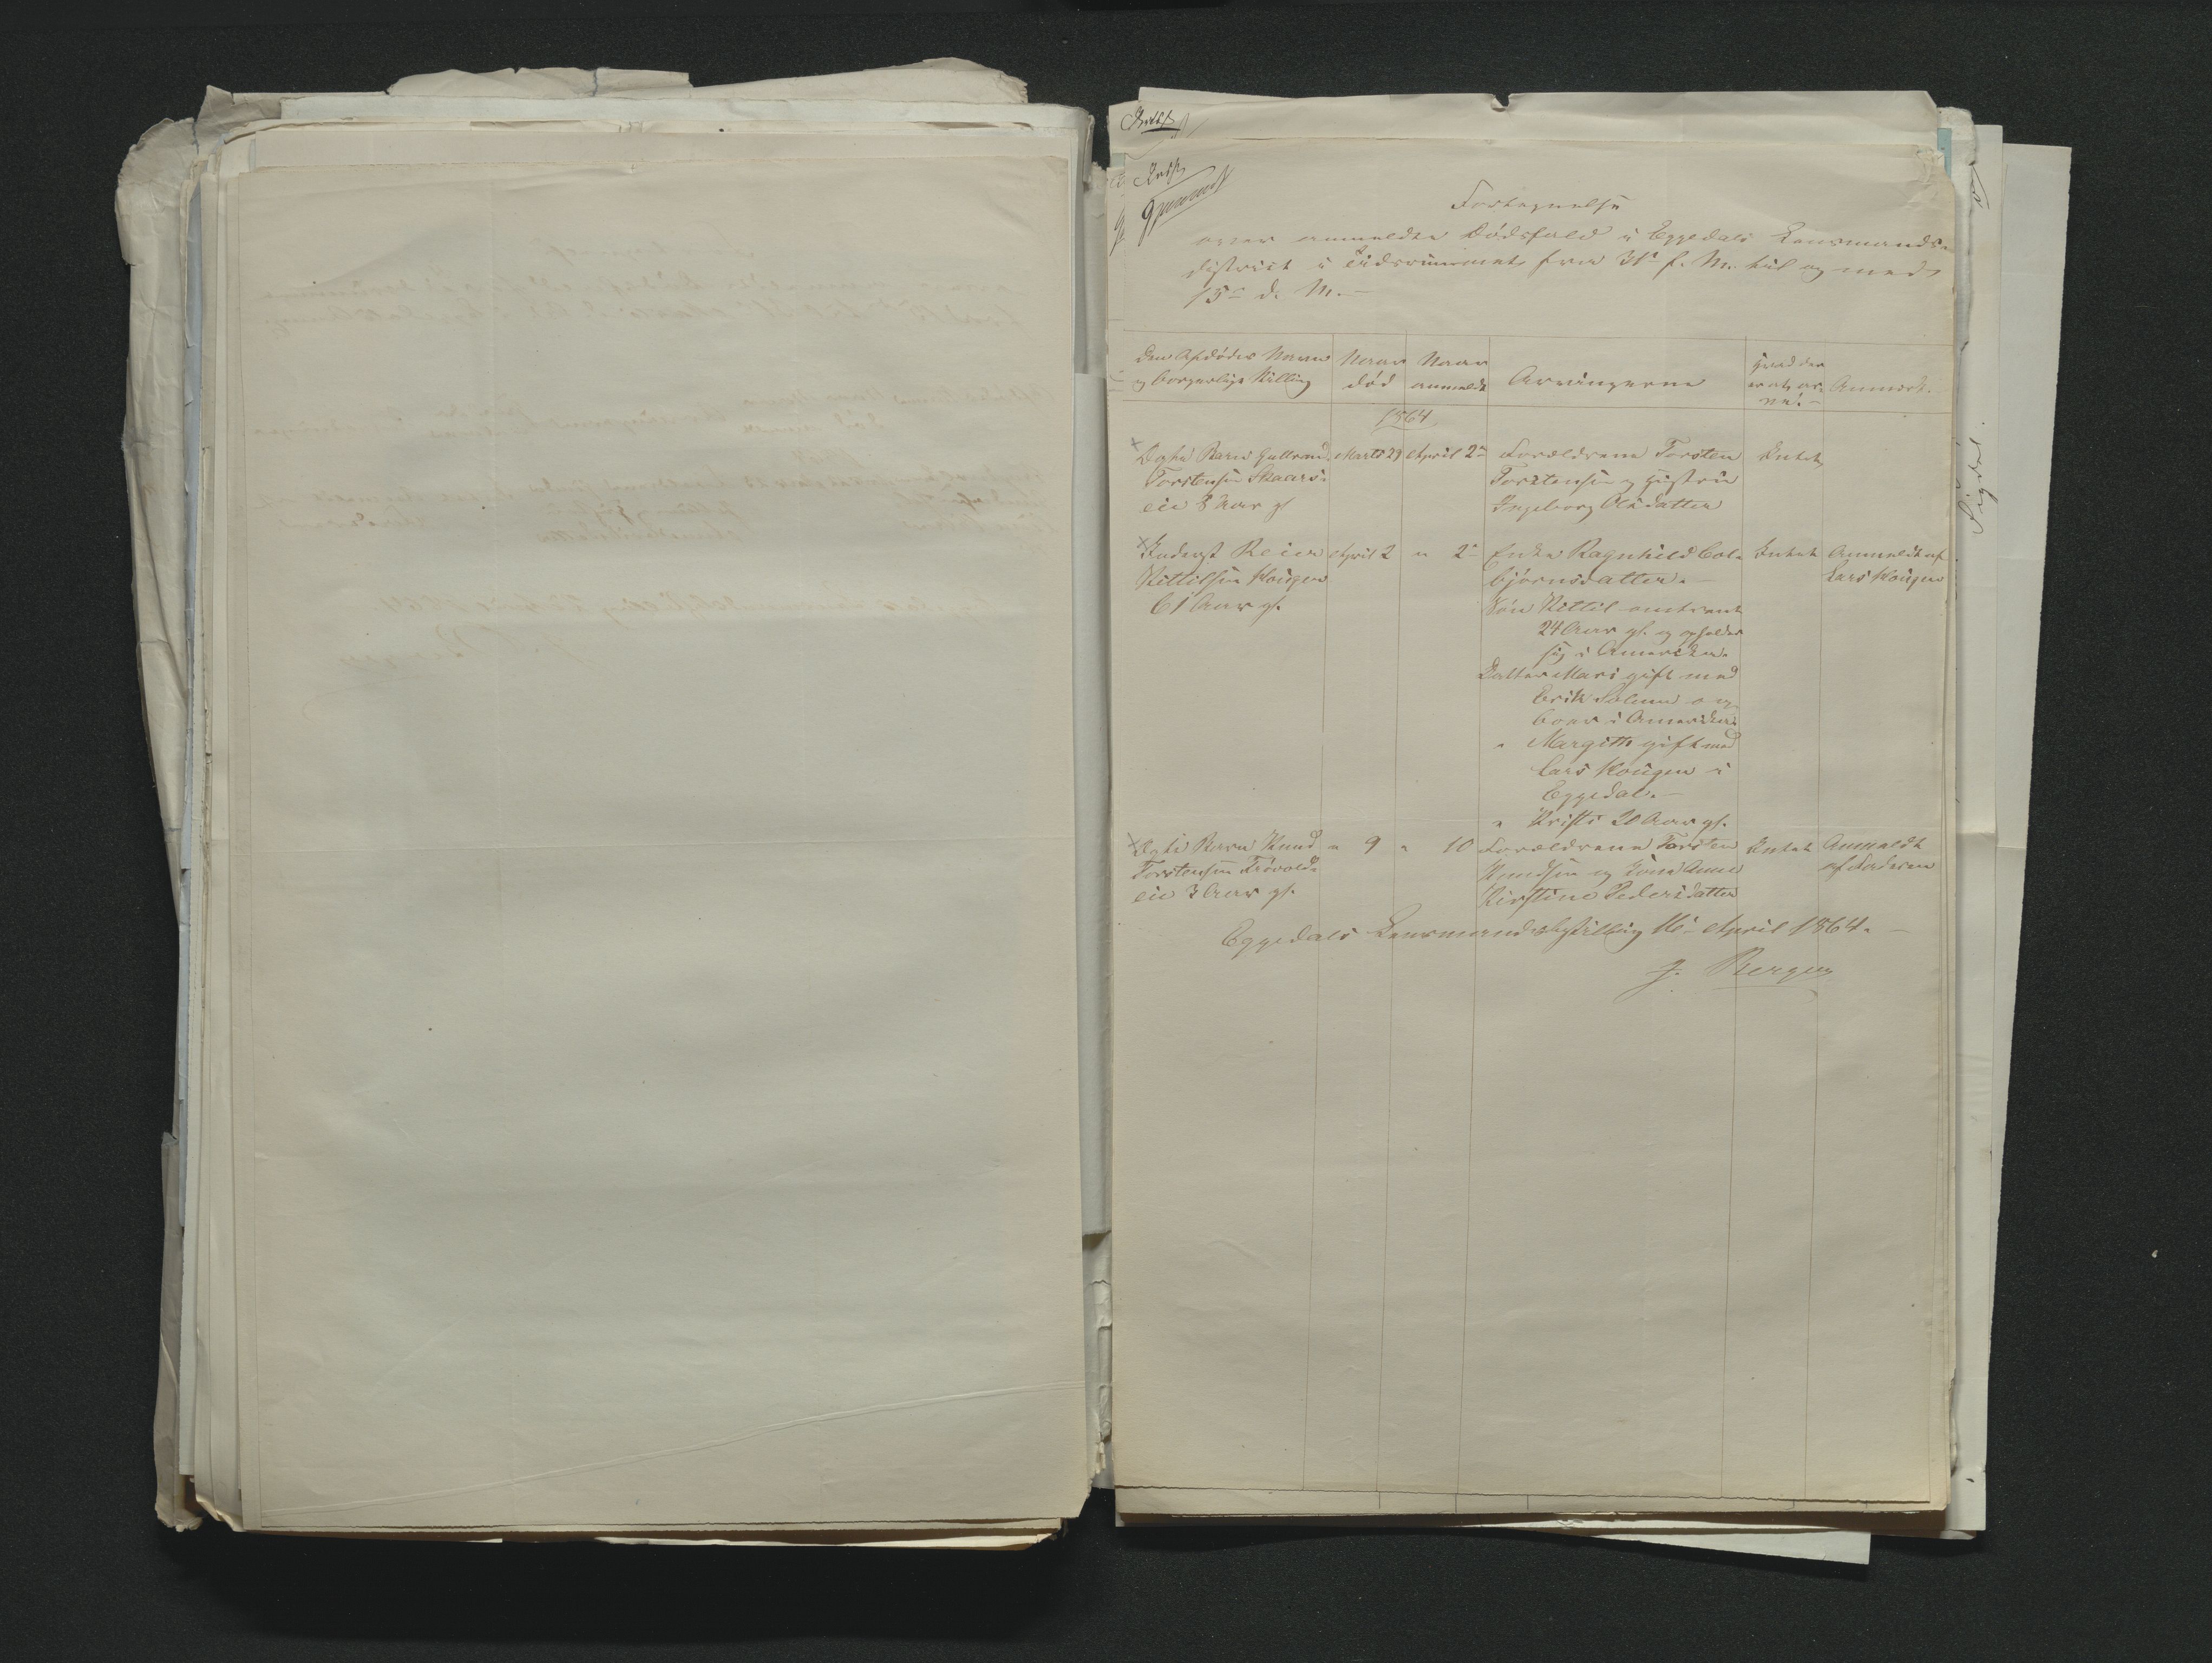 Fortegnelse
over anmeldte Dødsfald i Eggedals Lensmands-
distrikt i Tidsrummet fra 31te f. M. til og med
15de d. M. —
Den Afdødes Navn og borgerlige Stilling
Naar død
Naar anmeldt
Arvingerne
Hvad der er at ar-
ve. —
Anmærk.
1864
Dgbn Barn Gulbrand Marts 29 April 2den Forældrene Torsten Intet
Torstensen Skaars- Torstensen og Hustru
eie 3 Aar gl Ingeborg Olsdatter
Inderst Reier April 2 " 2den Enke Ragnhild Col- Intet Anmeldt af
Kittilsen Kougen bjørnsdatter. — Lars Kougen
61 Aar gl. Søn Kittil omtrent
24 Aar gl. og opholder
sig i Amerika.
Datter Mari gift med
Erik Solum og
boer i Amerika
" Margith gift med
Lars Kougen i
Eggedal. —
" Kristi 20 Aar gl.
Barn Knud " 9 " 10 Forældrene Torsten Intet Anmeldt
Torstensen Frøvold- Knudsen og Kone Anne af Faderen
eie 3 Aar gl. Kirstine Pedersdatter
Eggedals Lensmandsbestilling 16de April 1864. —
J. Bergan
Sigdal.